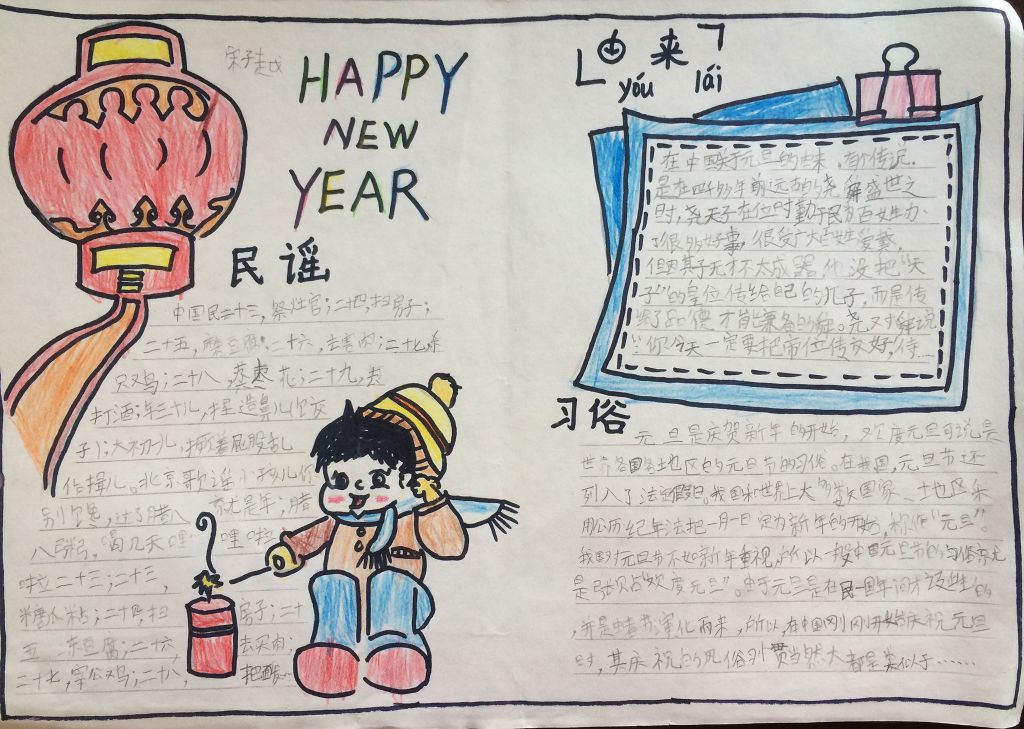 宋子越
HAPPY
NEW
YEAR
民谣
中国民二十三,祭灶官;二十四,扫房子;
二十五,磨豆腐;二十六,去割肉;二十七,杀
只鸡;二十八,蒸枣花;二十九,去
打酒;年三十儿,捏造鼻儿饺
子;大初一儿,撅着屁股乱
作揖儿。北京歌谣 小孩儿你
别馋,过了腊八 就是年;腊
八粥,喝几天,哩 哩啦
啦二十三;二十三,
糖瓜粘;二十四,扫
房子;二十
五 冻豆腐;二十六,
去买肉;
二十七,宰公鸡;二十八,
把
由来
yóu lái
在中国关于元旦的由来,有个传说,
是在四千多年前远古的尧舜盛世之
时,尧天子在位时勤于民为百姓办
了很多好事,很受广大百姓爱戴,
但因其子无才不太成器,他没把“天
子”的皇位传给自己的儿子,而是传
给了品德才能兼备的舜。尧对舜说
“你今天一定要把帝位传交好,待
习俗
元旦是庆贺新年的开始,欢度元旦可说是
世界各国各地区的元旦节的习俗。在我国,元旦节还
列入了法定假日。我国和世界上大多数国家、土地区采
用公历纪年法把一月一日定为新年的开始,称作“元旦”。
我国对元旦节不如新年重视,所以一般中国元旦节的
是张贴“欢度元旦”。由于元旦是在民国年间才诞生的
,所以,在中国刚刚开始庆祝元旦
时,其庆祝的风俗习惯当然大都是类似于……